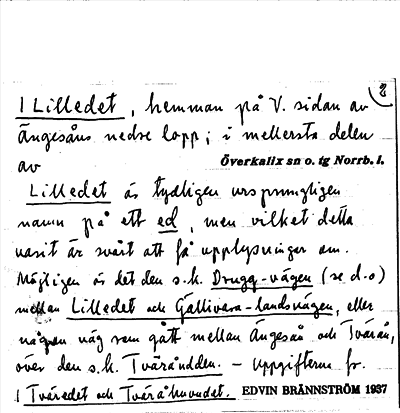 2
1 Lilledet, hemman på V. sidan av
Ängesåns nedre lopp; i mellersta delen
av
Överkalix sn o. tg Norrb. l.
Lilledet är tydligen ursprungligen
namn på ett ed, men vilket detta
varit är svårt att få upplysningar om.
Möjligen är det den s.k. Drugg-vägen (se d-o)
mellan Lilledet och Gällivara-landsvägen, eller
någon väg som gått mellan Ängesån och Tvärån,
över den s.k. Tväråudden. - Uppgifterna fr.
1 Tväredet och Tväråhuvudet. EDVIN BRÄNNSTRÖM 1937